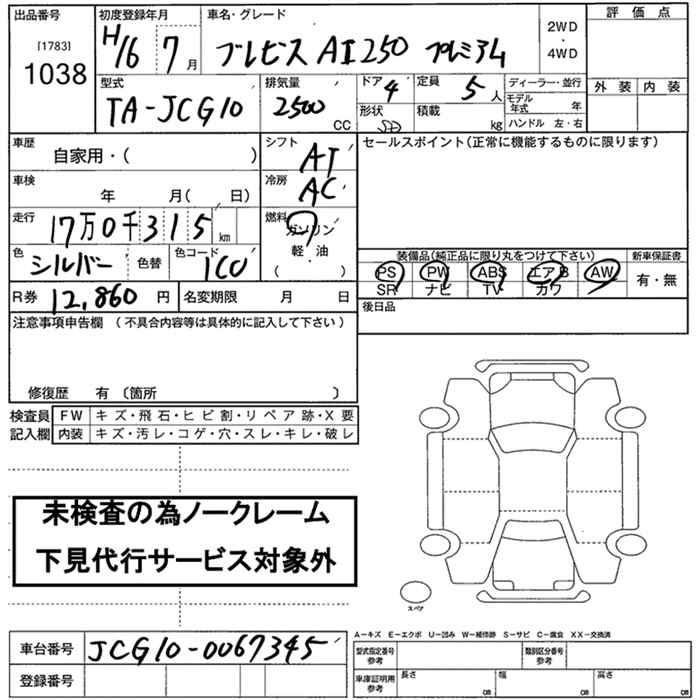 出品番号 初度登録年月 車名・グレード 評価点
[1783]
1038 H16 7月 ブレビス AI250 プレミアム 2WD・4WD
外装 内装
型式 排気量 ドア 定員 ディーラー・並行
TA-JCG10 2500CC 4 5人 モデル年式 年
形状 SD 積載 kg ハンドル 左・右
車歴 シフト セールスポイント(正常に機能するものに限ります)
自家用・( ) AT
車検 冷房
年 月( 日) AC
走行 燃料
17万0千315km ガソリン
軽・油
( )
色 色コード 装備品(純正品に限り丸をつけて下さい) 新車保証書
シルバー 色替 1C0 PS PW ABS エアB AW 有・無
SR ナビ TV カワ
R券 12,860円 名変期限 月 日 後日品
注意事項申告欄 (不具合内容等は具体的に記入して下さい)
修復歴 有 〔箇所 〕
検査員 FW キズ・飛石・ヒビ割・リペア跡・X要
記入欄 内装 キズ・汚レ・コゲ・穴・スレ・キレ・破レ
未検査の為ノークレーム
下見代行サービス対象外
スペア
A−キズ E−エクボ U−凹み W−補修跡 S−サビ C−腐食 XX−交換済
車台番号 JCG10-0067345 型式指定番号 参考 類別区分番号 参考
登録番号 車庫証明用 参考 長さ cm 幅 cm 高さ cm